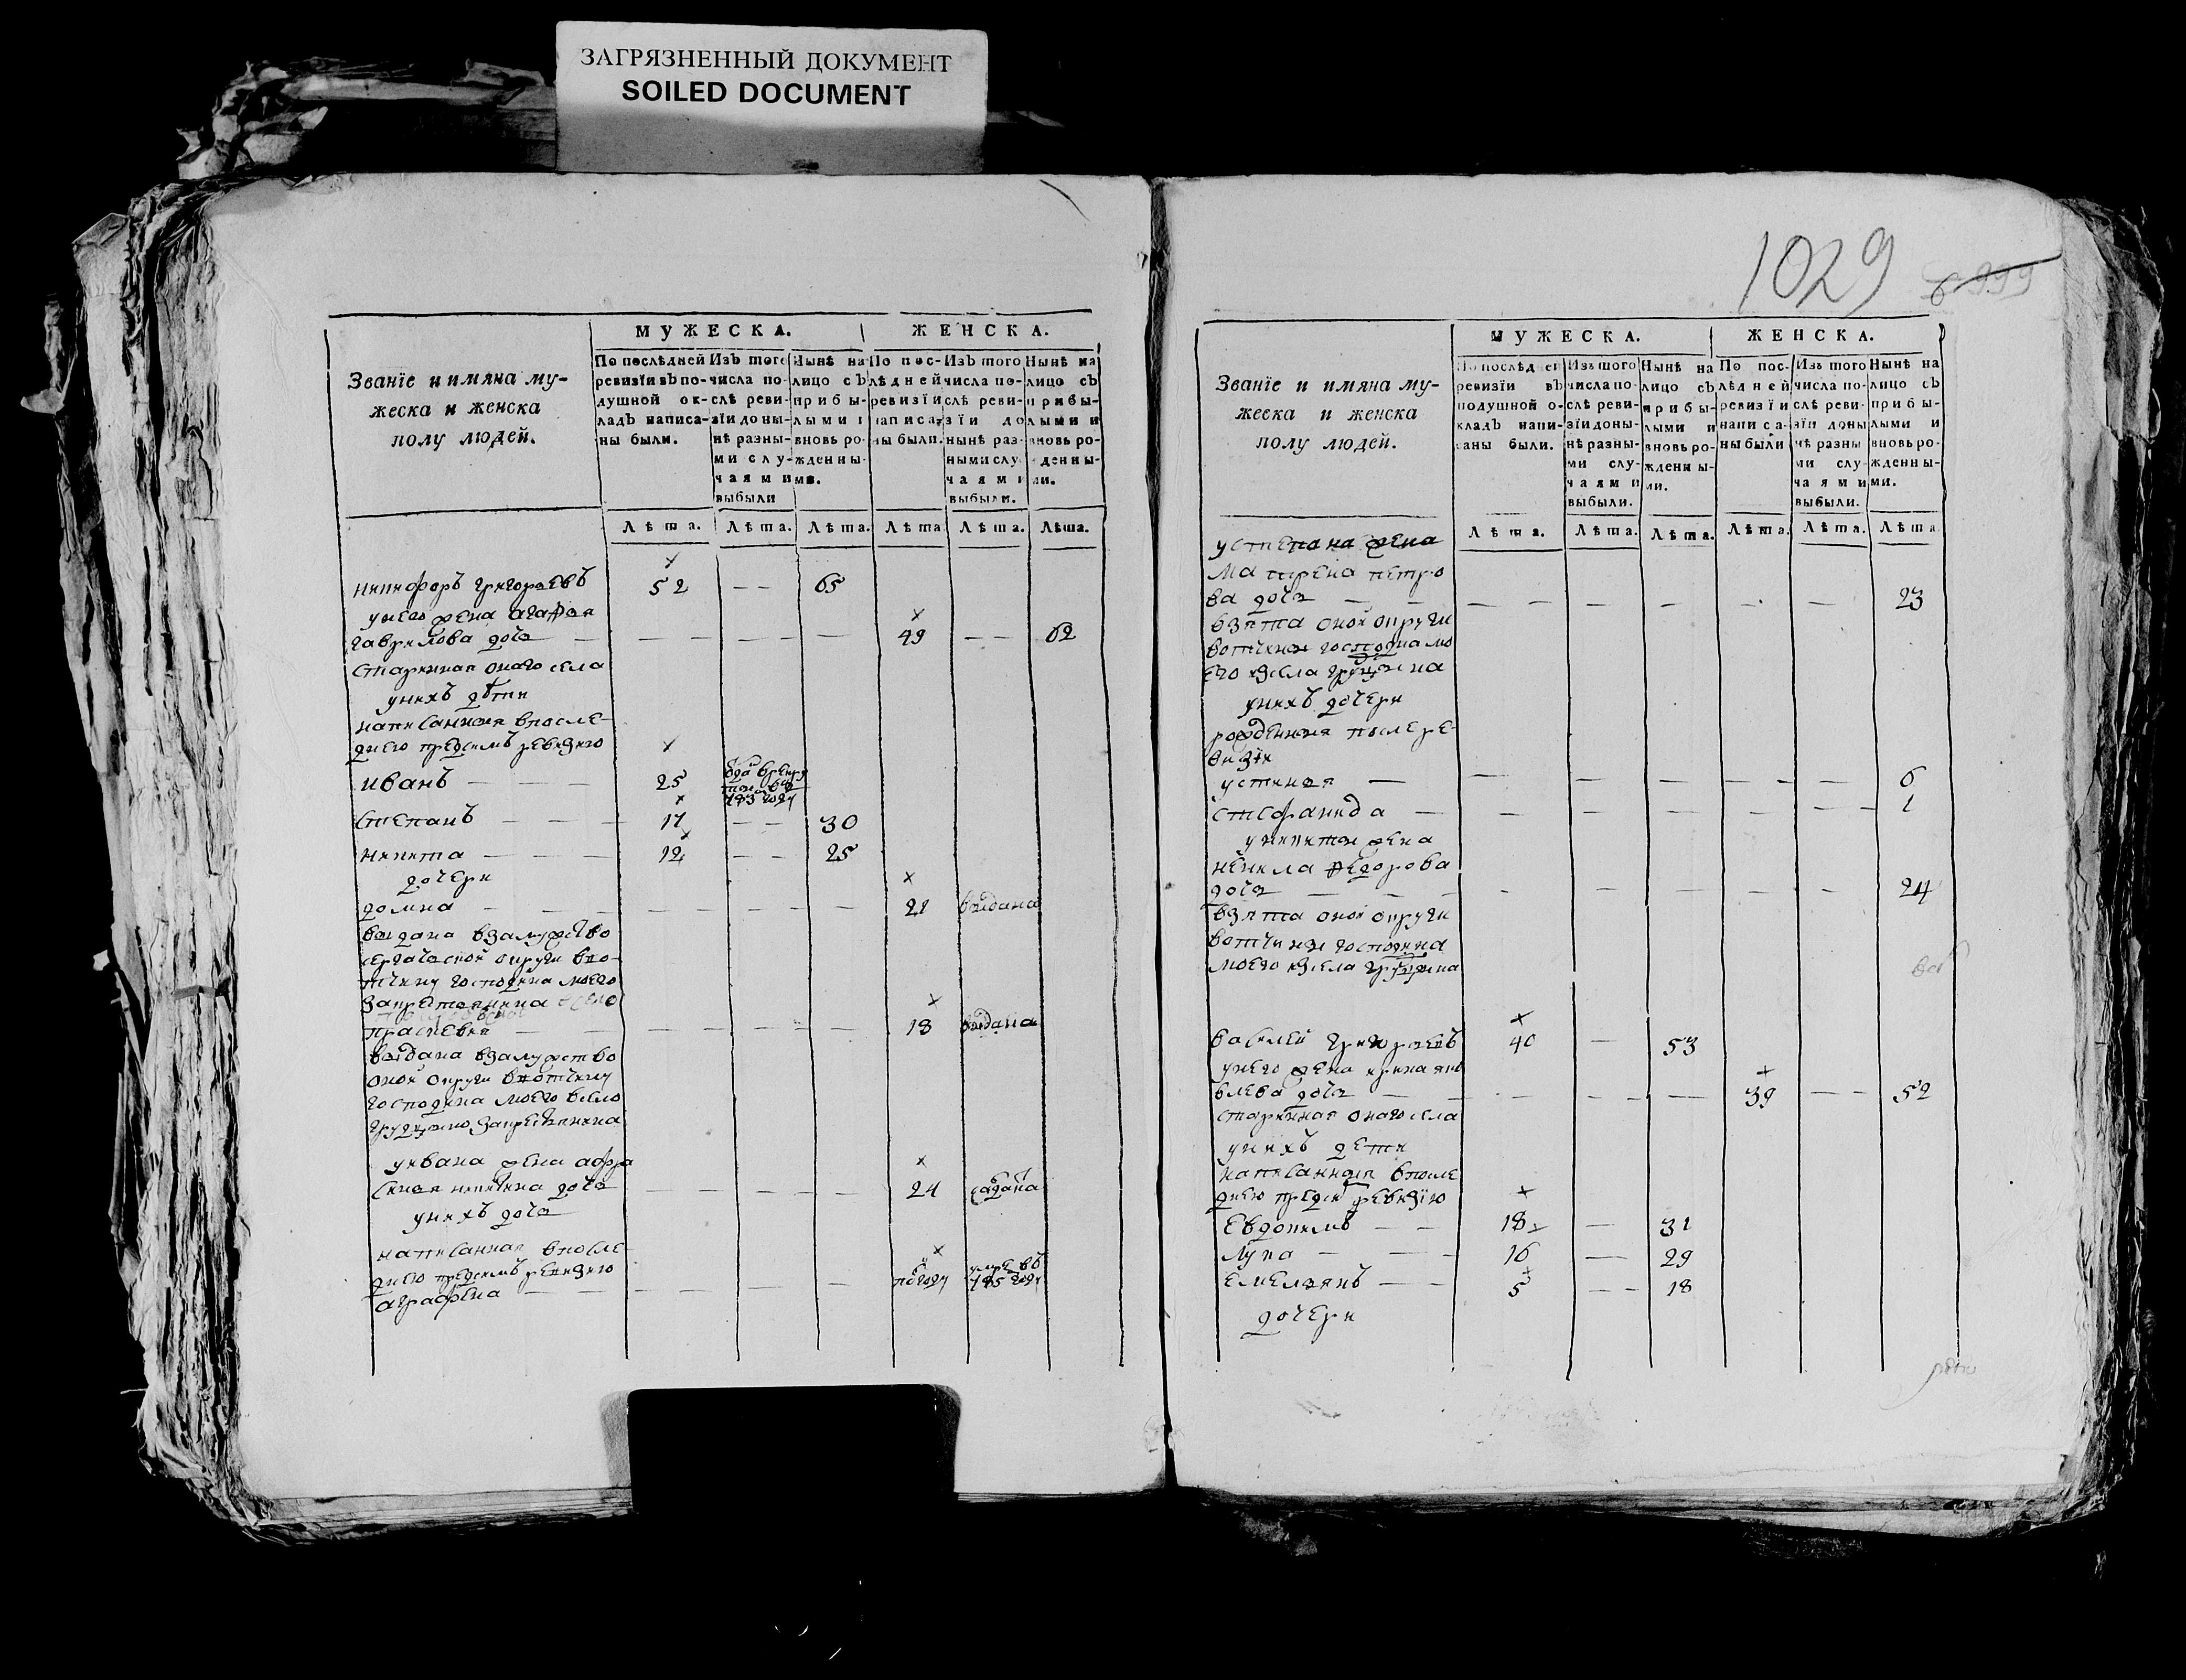 ЗАГРЯЗНЕННЫЙ ДОКУМЕНТ
SOILED DOCUMENT
Званїе и имяна му-
жеска и женска
полу людей.
МУЖЕСКА.
ЖЕНСКА.
По послѣдней
ревизїи въ по-
душной ок-
ладъ написа-
ны были.
Изъ того
числа по-
слѣ реви-
зїи доны-
нѣ разны-
ми слу-
чаями
выбыли
Нынѣ на
лицо съ
прибы-
лыми и
вновь ро-
жденны-
ми.
По пос-
лѣдней
ревизїи
написа-
ны были.
Изъ того
числа по-
слѣ реви-
зїи до
нынѣ раз-
ными слу-
чаями
выбыли.
Нынѣ на
лицо съ
прибы-
лыми и
вновь ро-
жденны-
ми.
Лѣта. Лѣта. Лѣта. Лѣта. Лѣта. Лѣта.
никифоръ григорьевъ 52 — — 65
у него жена агафья
гаврилова дочь — — — — — 49 — — 62
старинная оного села
у нихъ дѣти
написанныя в после-
днею предсимъ ревизию
иванъ — — — 25 783 году
степанъ — — — 17 — — 30
никита — — — 12 — — 25
дочери
домна — — — — — — — 21 выдана
выдана в замужство
сергачской округи в во-
тчину господина моего
прасковья — — — — — — 18 выдана
выдана в замужство
оной округи в вотчину
господина моего в село
у ивана жена афро
синья никитина дочь — — — — — 24
у нихъ дочь
написанная в после-
днею предсимъ ревизию
аграфена — — — — — — полгоду умре въ 785 году
1029
999
Званїе и имяна му-
жеска и женска
полу людей.
МУЖЕСКА.
ЖЕНСКА.
По послѣдней
ревизїи въ
подушной о-
кладъ напи-
саны были.
Изъ того
числа по-
слѣ реви-
зїи доны-
нѣ разны-
ми слу-
чаями
выбыли.
Нынѣ на
лицо съ
прибы-
лыми и
вновь ро-
жденны-
ми.
По пос-
лѣдней
ревизїи
написа-
ны были
Изъ того
числа по-
слѣ реви-
зїи доны
нѣ разны
ми слу-
чаями
выбыли.
Нынѣ на
лицо съ
прибы-
лыми и
вновь ро-
жденны-
ми.
Лѣта. Лѣта. Лѣта. Лѣта. Лѣта. Лѣта
у степана жена
матрена петро
ва дочь — — — — — — — 23
взята оной округи
вотчины господина мо
его изсела
у нихъ дочери
рожденныя после ре-
визїи
устинья — — — — — — 6
стефанида — — — — — — 1
у никиты жена
ненила федорова
дочь — — — — — — 24
взята оной округи
вотчины господина
моего изсела
василей григорьевъ 40 — 53
у него жена ирина яко
влева дочь — — — — — 39 — — 52
старинная оного села
у нихъ дети
написанныя в после
днею предси ревизїю
Евдокимъ — — 18 — 31
лука — — 16 — 29
емельянъ — — 5 — — 18
дочери